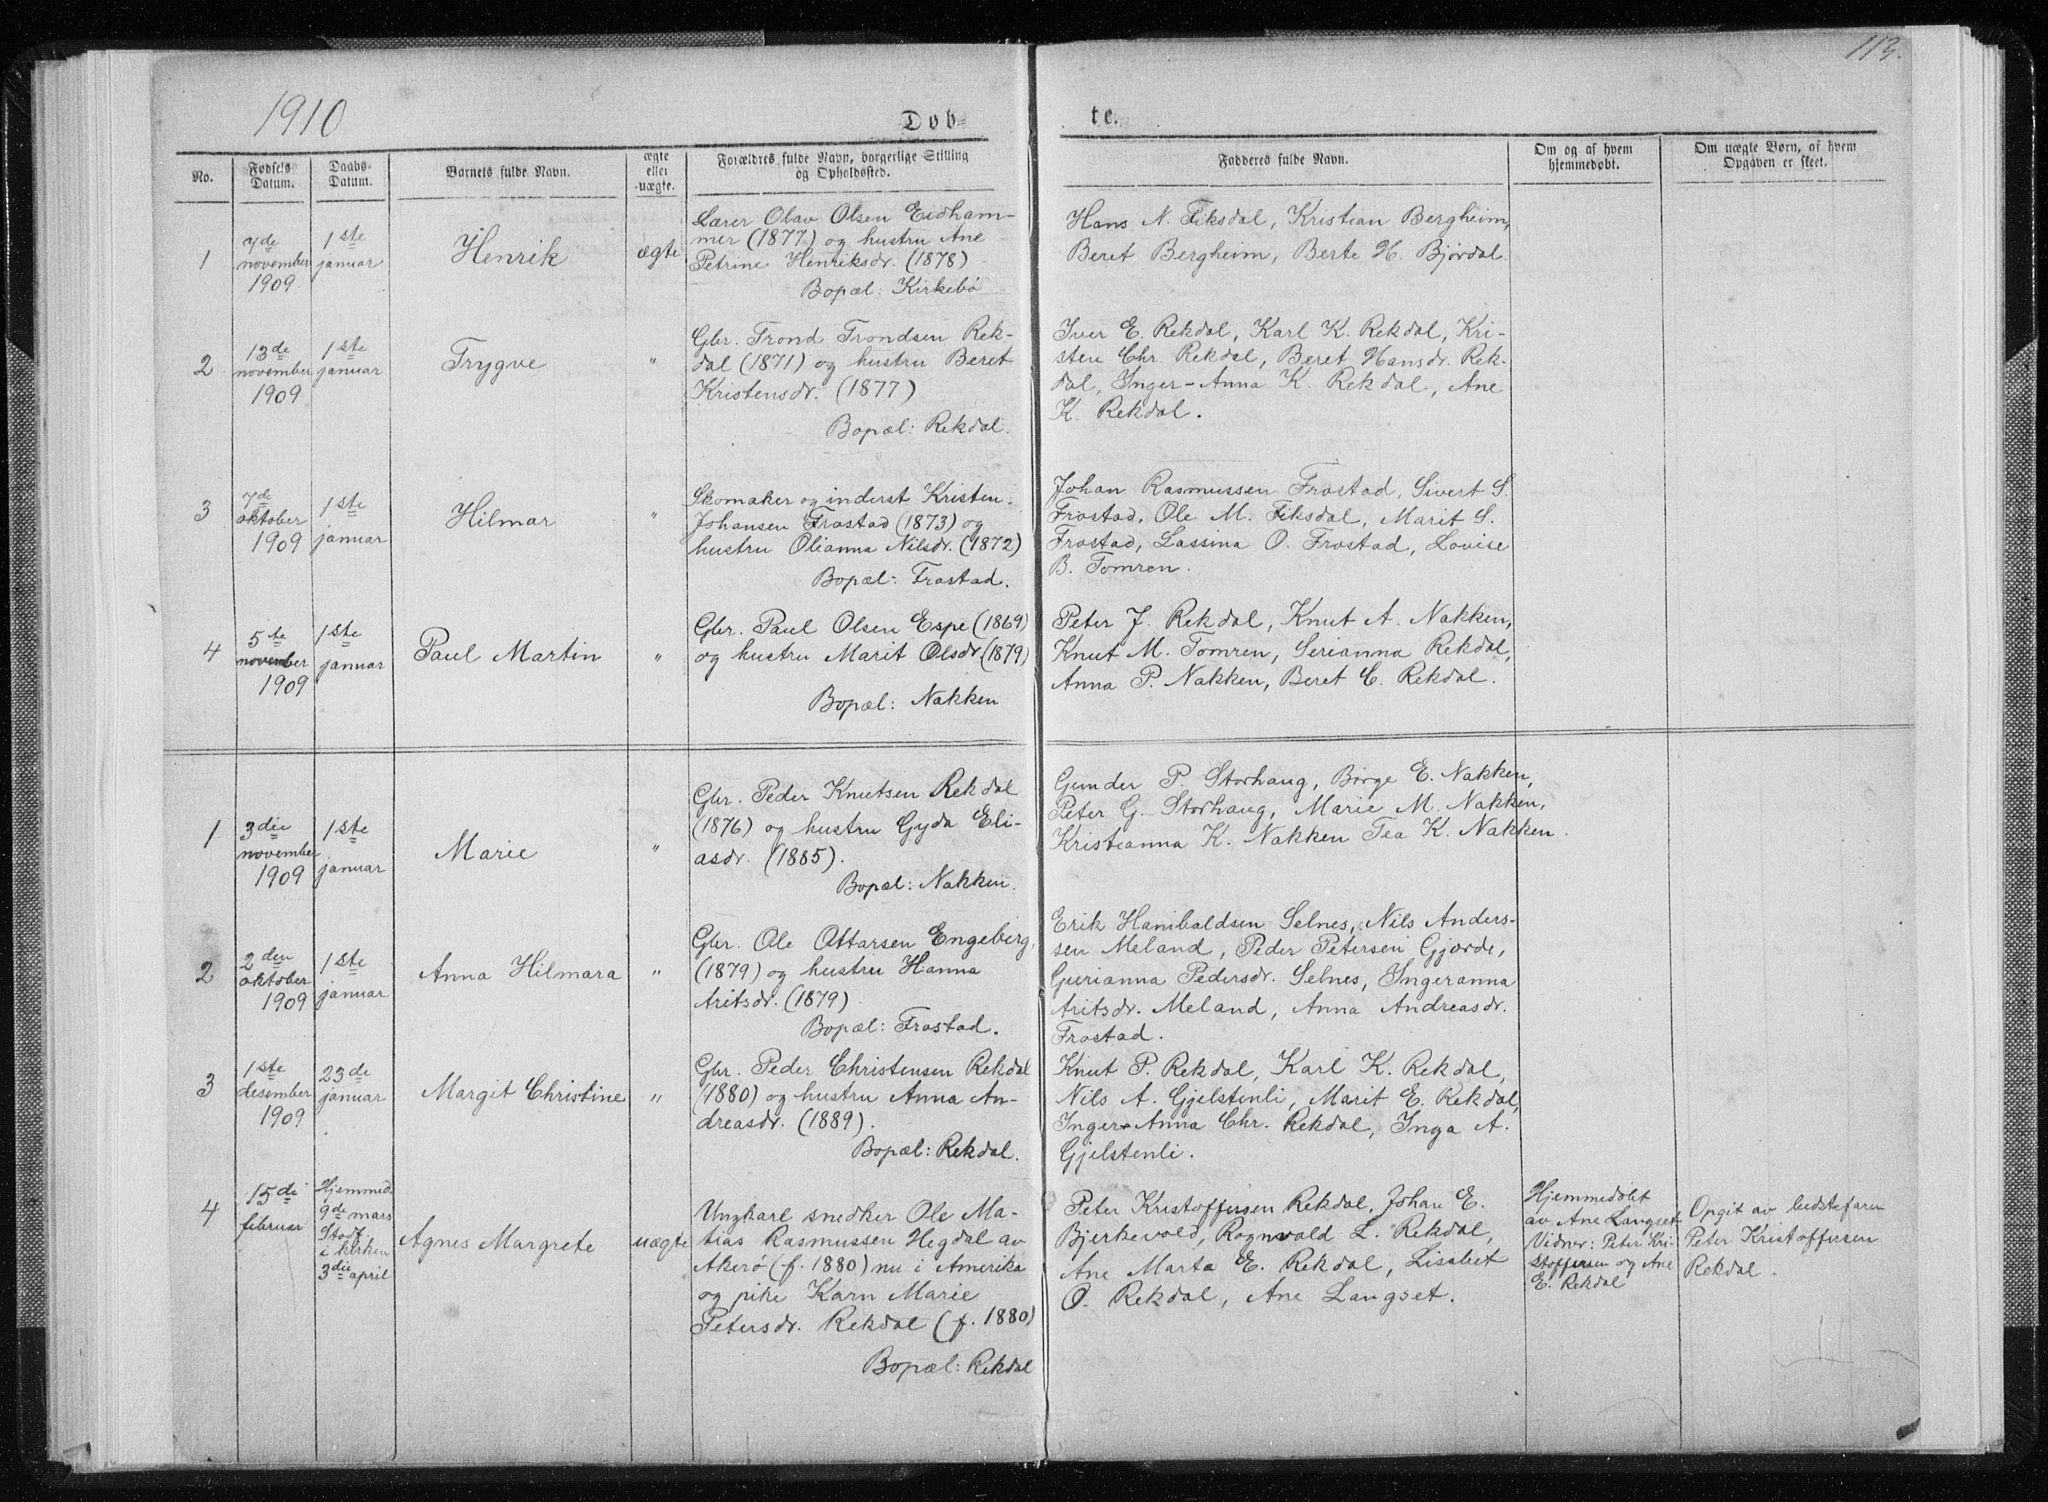 113.
1910
Døb-
te.
No.
Fødsels Datum.
Daabs- Datum.
Barnets fulde Navn.
ægte eller uægte.
Forældres fulde Navn, borgerlige Stilling og Opholdssted.
Fadderes fulde Navn.
Om og af hvem hjemmedøbt.
Om uægte Børn, af hvem Opgaven er skeet.
1
7de november 1909
1ste januar
Henrik
ægte
Lærer Olav Olsen Eidham-
mer (1877) og hustru Ane
Petrine Henriksdr. (1878)
Bopæl: Kirkebø
Hans N. Fiksdal, Kristian Bergheim,
Beret Bergheim, Berte H. Bjørdal.
2
13de november 1909
1ste januar
Trygve
"
Gbr. Trond Trondsen Rek-
dal (1871) og hustru Beret
Kristensdr. (1877)
Bopæl: Rekdal.
Iver E. Rekdal, Karl K. Rekdal, Kri-
sten Chr. Rekdal, Beret Hansdr. Rek-
dal, Inger-Anna K. Rekdal, Ane
K. Rekdal.
3
7de oktober 1909
1ste januar
Hilmar
"
Skomaker og inderst Kristen
Johansen Frostad (1873) og
hustru Olianna Nilsdr. (1872)
Bopæl: Frostad.
Johan Rasmussen Frostad, Sivert S.
Frostad, Ole M. Fiksdal, Marit S.
Frostad, Lassina O. Frostad, Lovise
B. Tomren.
4
5te november 1909
1ste januar
Paul Martin
"
Gbr. Paul Olsen Espe (1869)
og hustru Marit Olsdr. (1879)
Bopæl: Nakken
Peter J. Rekdal, Knut A. Nakken,
Knut M. Tomren, Serianna Rekdal,
Anna P. Nakken, Beret C. Rekdal.
1
3die november 1909
1ste januar
Marie
"
Gbr. Peder Knutsen Rekdal
(1876) og hustru Gyda Eli-
asdr. (1885).
Bopæl: Nakken.
Gunder P. Storhaug, Børge E. Nakken,
Peter G. Storhaug, Marie M. Nakken,
Kristianna K. Nakken Tea K. Nakken.
2
2den oktober 1909
1ste januar
Anna Hilmara
"
Gbr. Ole Ottarsen Engeberg,
(1879) og hustru Hanna
Aritsdr. (1879)
Bopæl: Frostad.
Erik Hanibaldsen Selnes, Nils Anders-
sen Meland, Peder Petersen Gjørde,
Gurianna Pedersdr. Selnes, Ingeranna
Aritsdr. Meland, Anna Andreasdr.
Frostad.
3
1ste desember 1909
23de januar
Margit Christine
"
Gbr. Peder Christensen Rekdal
(1880) og hustru Anna An-
dreasdr. (1889).
Bopæl: Rekdal.
Knut P. Rekdal, Karl K. Rekdal,
Nils A. Gjelstenli, Marit E. Rekdal,
Inger-Anna Chr. Rekdal, Inga A.
Gjelstenli.
4
15de februar
Hjemmed. 9de mars Stadf. i kirken 3die april
Agnes Margrete
uægte
Ungkarl snedker Ole Ma-
tias Rasmussen Hegdal av
Akerø (f. 1880) nu i Amerika
og pike Karn Marie
Petersdr. Rekdal (f. 1880)
Bopæl: Rekdal
Peter Kristoffersen Rekdal, Johan E.
Bjerkevold, Rognvald L. Rekdal,
Ane Marta E. Rekdal, Lisabet
O. Rekdal, Ane Langset.
Hjemmedøbt
av Ane Langset
Vidner: Peter Kri-
stoffersen og Ane
E. Rekdal
Opgit av bedstefaren
Peter Kristoffersen
Rekdal.